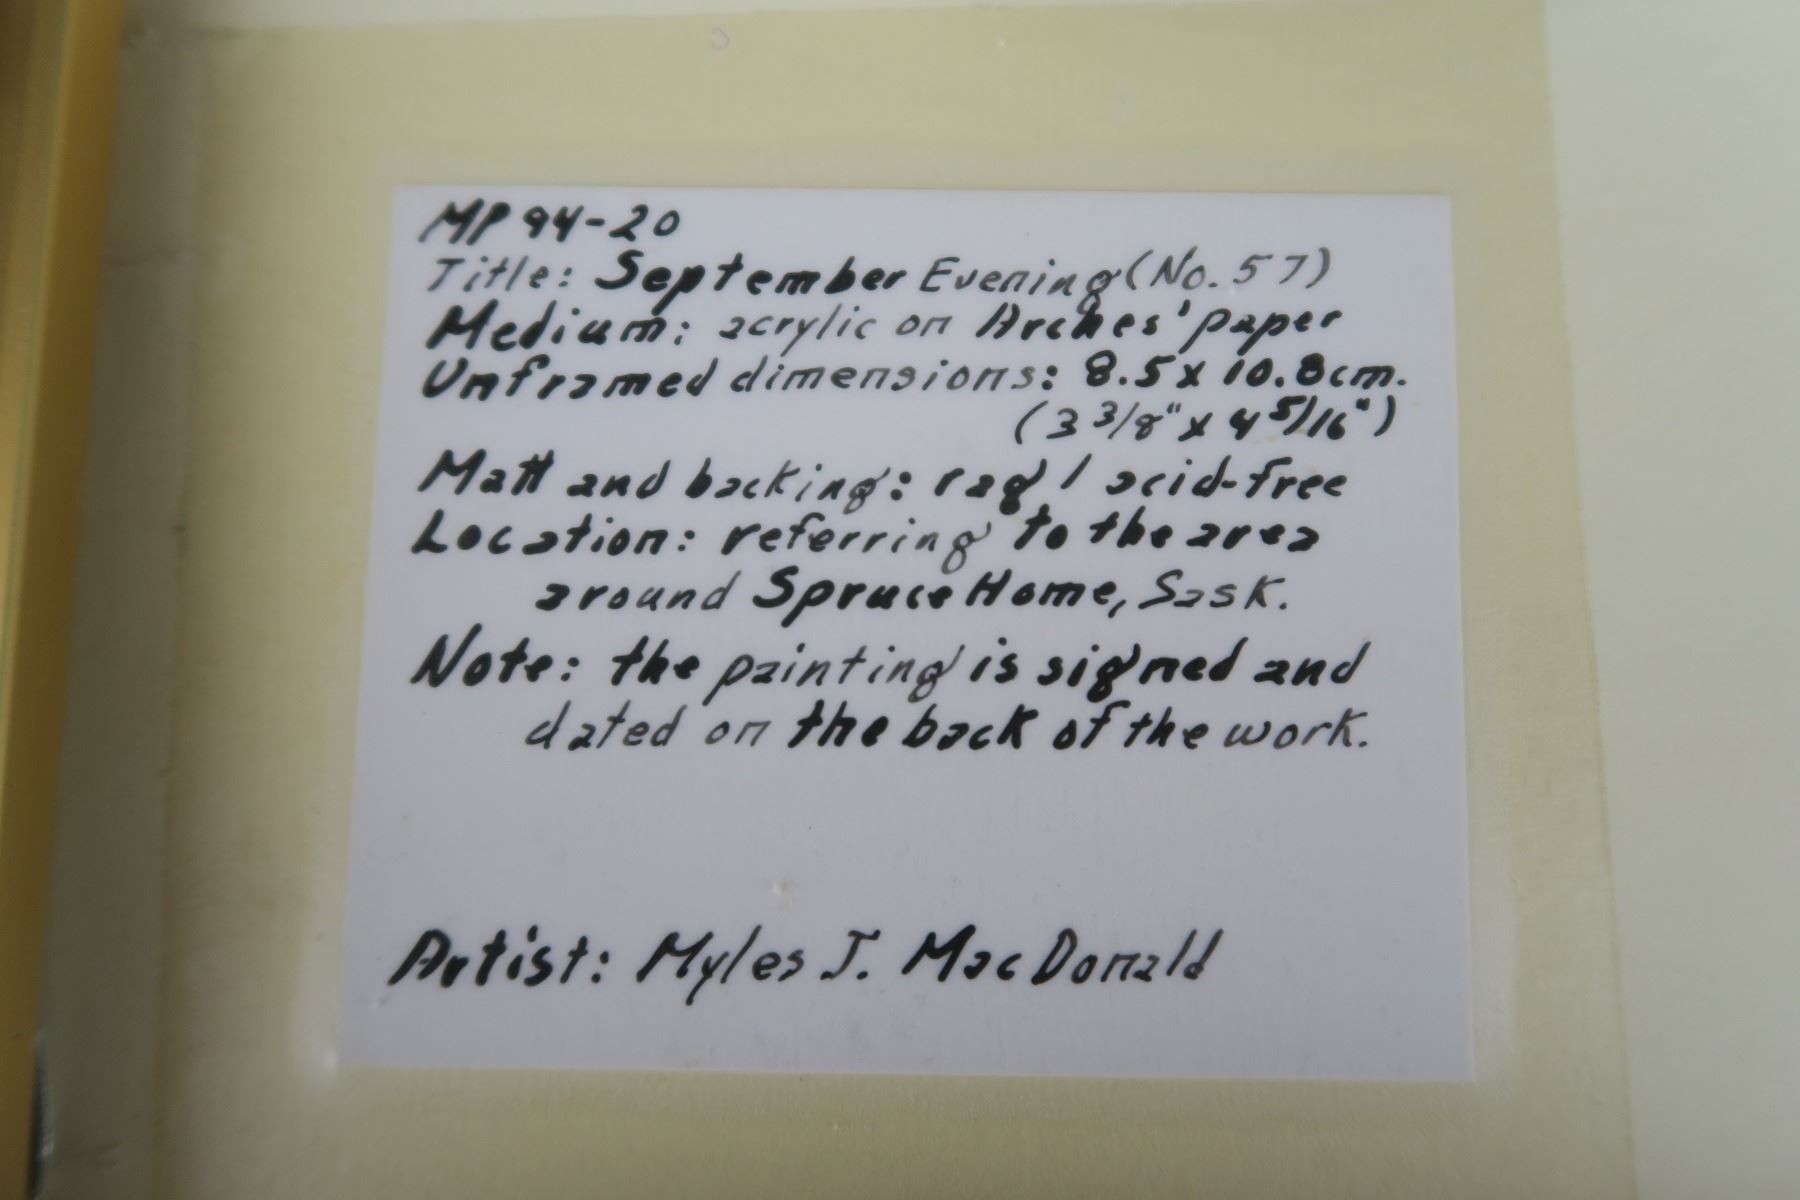 MP 94-20
Title: September Evening (No. 57)
Medium: acrylic on Arches' paper
Unframed dimensions: 8.5 x 10.8 cm.
(3 3/8" x 4 5/16")
Matt and backing: rag / acid-free
Location: referring to the area
around Spruce Home, Sask.
Note: the painting is signed and
dated on the back of the work.
Artist: Myles J. MacDonald